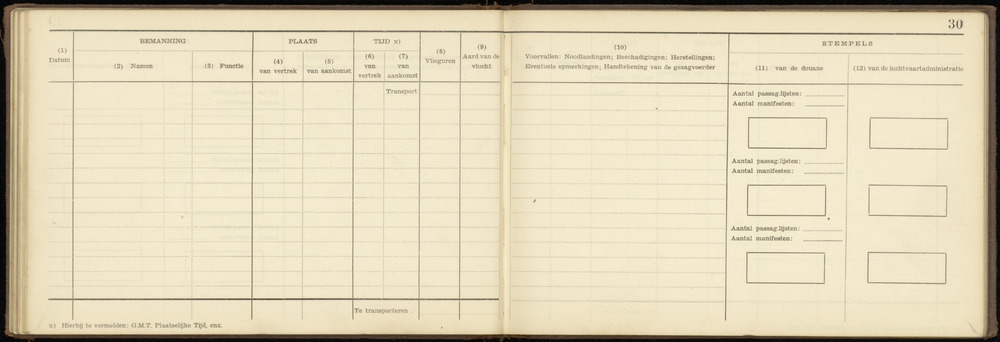 30
(1)
Datum
BEMANNING
(2) Namen
(3) Functie
PLAATS
(4)
van vertrek
(5)
van aankomst
TIJD x)
(6)
van
vertrek
(7)
van
aankomst
(8)
Vlieguren
(9)
Aard van de
vlucht
(10)
Voorvallen: Noodlandingen; Beschadigingen; Herstellingen;
Eventuele opmerkingen; Handtekening van de gezagvoerder
STEMPELS
(11) van de douane
(12) van de luchtvaartadministratie
Transport
Aantal passag.lijsten:
Aantal manifesten:
Aantal passag.lijsten:
Aantal manifesten:
Aantal passag.lijsten:
Aantal manifesten:
Te transporteren
x) Hierbij te vermelden: G.M.T. Plaatselijke Tijd, enz.